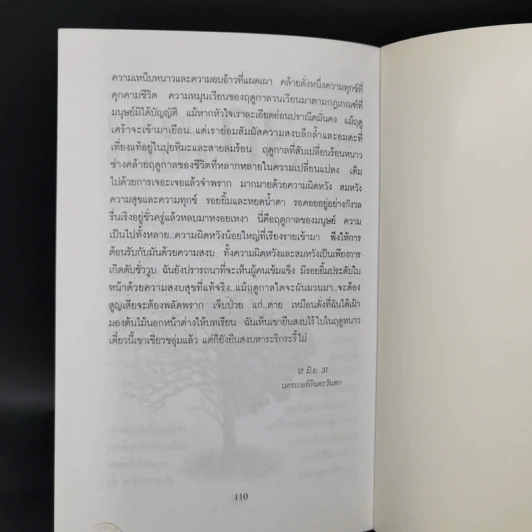 ความเหน็บหนาวและความอบอ้าวที่แผดเผา คล้ายดั่งหนึ่งความทุกข์ที่
คุกคามชีวิต ความหมุนเวียนของฤดูกาลวนเวียนมาตามกฎเกณฑ์ที่
มนุษย์มิได้บัญญัติ แม้หากหัวใจเราละเอียดอ่อนปราณีตมั่นคง แม้ฤดู
เศร้าจะเข้ามาเยือน..แต่เราย่อมสัมผัสความสงบลึกล้ำและอมตะที่
เที่ยงแท้อยู่ในปุยหิมะและสายลมร้อน ฤดูกาลที่สับเปลี่ยนร้อนหนาว
ช่างคล้ายฤดูกาลของชีวิตที่หลากหลายในความเปลี่ยนแปลง เต็ม
ไปด้วยการเจอะเจอแล้วจำพราก มากมายด้วยความผิดหวัง สมหวัง
ความสุขและความทุกข์ รอยยิ้มและหยดน้ำตา รอคอยอยู่อย่างกังวล
รื่นเริงอยู่ชั่วครู่แล้วหลบมาหงอยเหงา นี่คือฤดูกาลของมนุษย์ ความ
เป็นไปทั้งหลาย..ความผิดหวังน้อยใหญ่ที่เรียงรายเข้ามา พึงให้การ
ต้อนรับกับมันด้วยความสงบ ทั้งความผิดหวังและสมหวังเป็นเพียงการ
เกิดดับชั่ววูบ ฉันยังปรารถนาที่จะเห็นผู้คนเข้มแข็ง มีรอยยิ้มประดับใบ
หน้าด้วยความสงบสุขที่แท้จริง..แม้ฤดูกาลใดจะผันผวนมา..จะต้อง
สูญเสียจะต้องพลัดพราก เจ็บป่วย แก่..ตาย เหมือนดั่งที่ฉันได้เฝ้า
มองต้นไม้นอกหน้าต่างให้บทเรียน ฉันเห็นเขายืนสงบไร้ใบในฤดูหนาว
เดี๋ยวนี้เขาเขียวชอุ่มแล้ว แต่ก็ยังยืนสงบหาระริกระรี้ไม่
๑๒ มิ.ย. ๓๑
นครเบอร์ลินตะวันตก
110